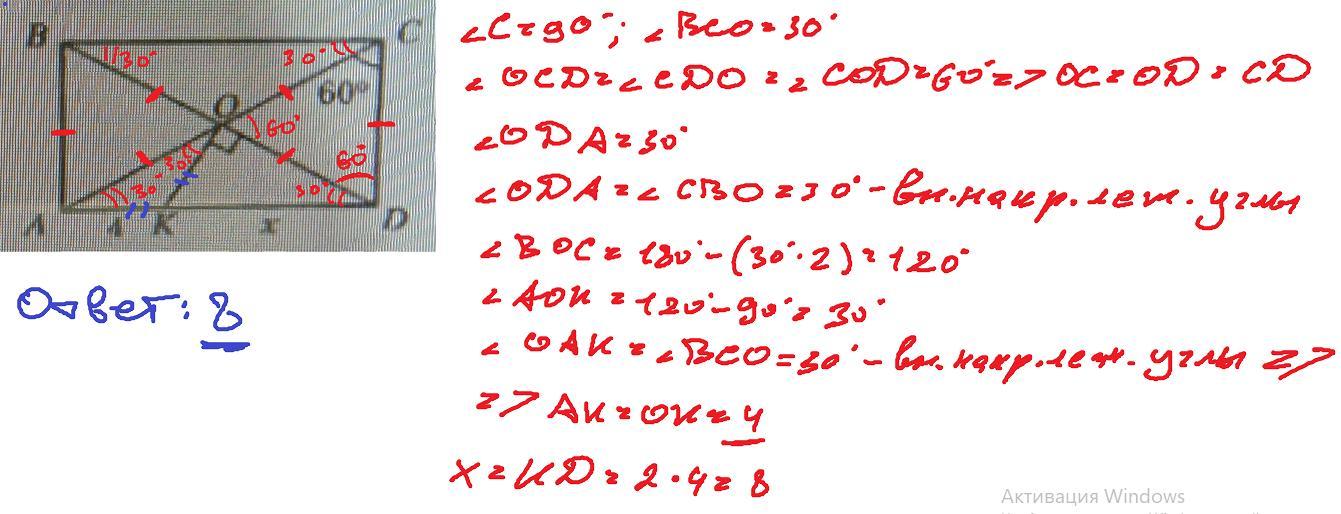 B
C
1/30°
30°
60°
O
60°
60°
30°
30°
30°
A
4
K
x
D
Ответ: 8
∠C=90°; ∠BCO=30°
∠OCD=∠CDO=∠COD=60°=>OC=OD=CD
∠ODA=30°
∠ODA=∠CBO=30°-вн.накр.леж.углы
∠BOC=180°-(30°·2)=120°
∠AOK=120°-90°=30°
∠OAK=∠BCO=30°-вн.накр.леж.углы =>
=> AK=OK=4
x=KD=2·4=8
Активация Windows